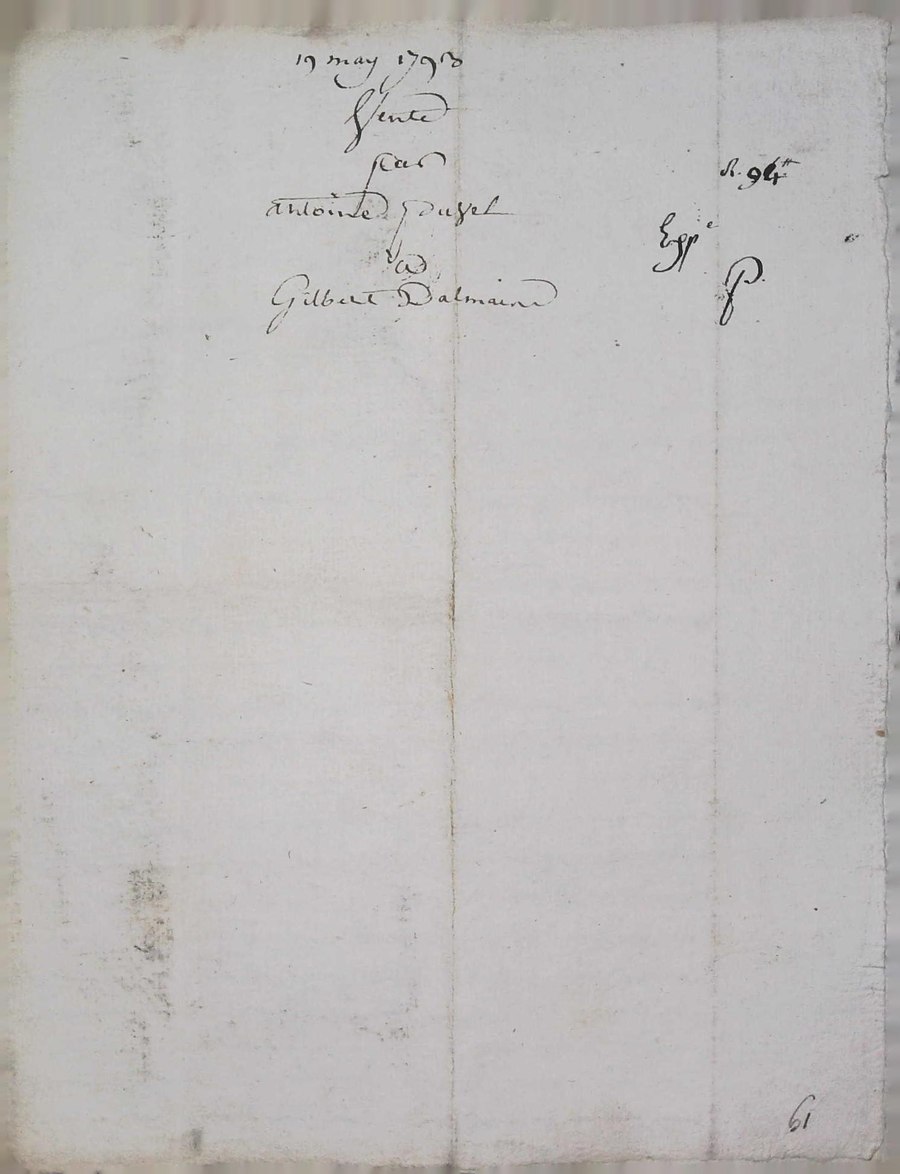 19 may 1793
Vente
par
antoine
a
Gilbert Dalmaine
R. 94#
Expe
P.
61